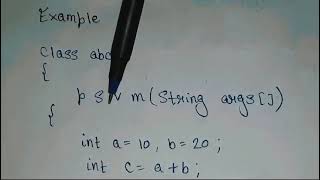 Example
Class abc
{
p s v m (String args[])
{
int a = 10, b = 20 ;
int c = a + b ;